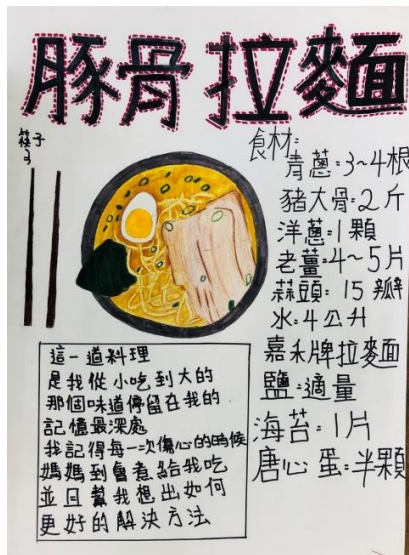 豚骨拉麵
筷子
食材:
青蔥:3~4根
豬大骨:2斤
洋蔥:1顆
老薑:4~5片
蒜頭:15瓣
水:4公升
嘉禾牌拉麵
鹽:適量
海苔:1片
唐心蛋:半顆
這一道料理
是我從小吃到大的
那個味道停留在我的
記憶最深處
我記得每一次傷心的時候
媽媽到會煮給我吃
並且幫我想出如何
更好的解決方法